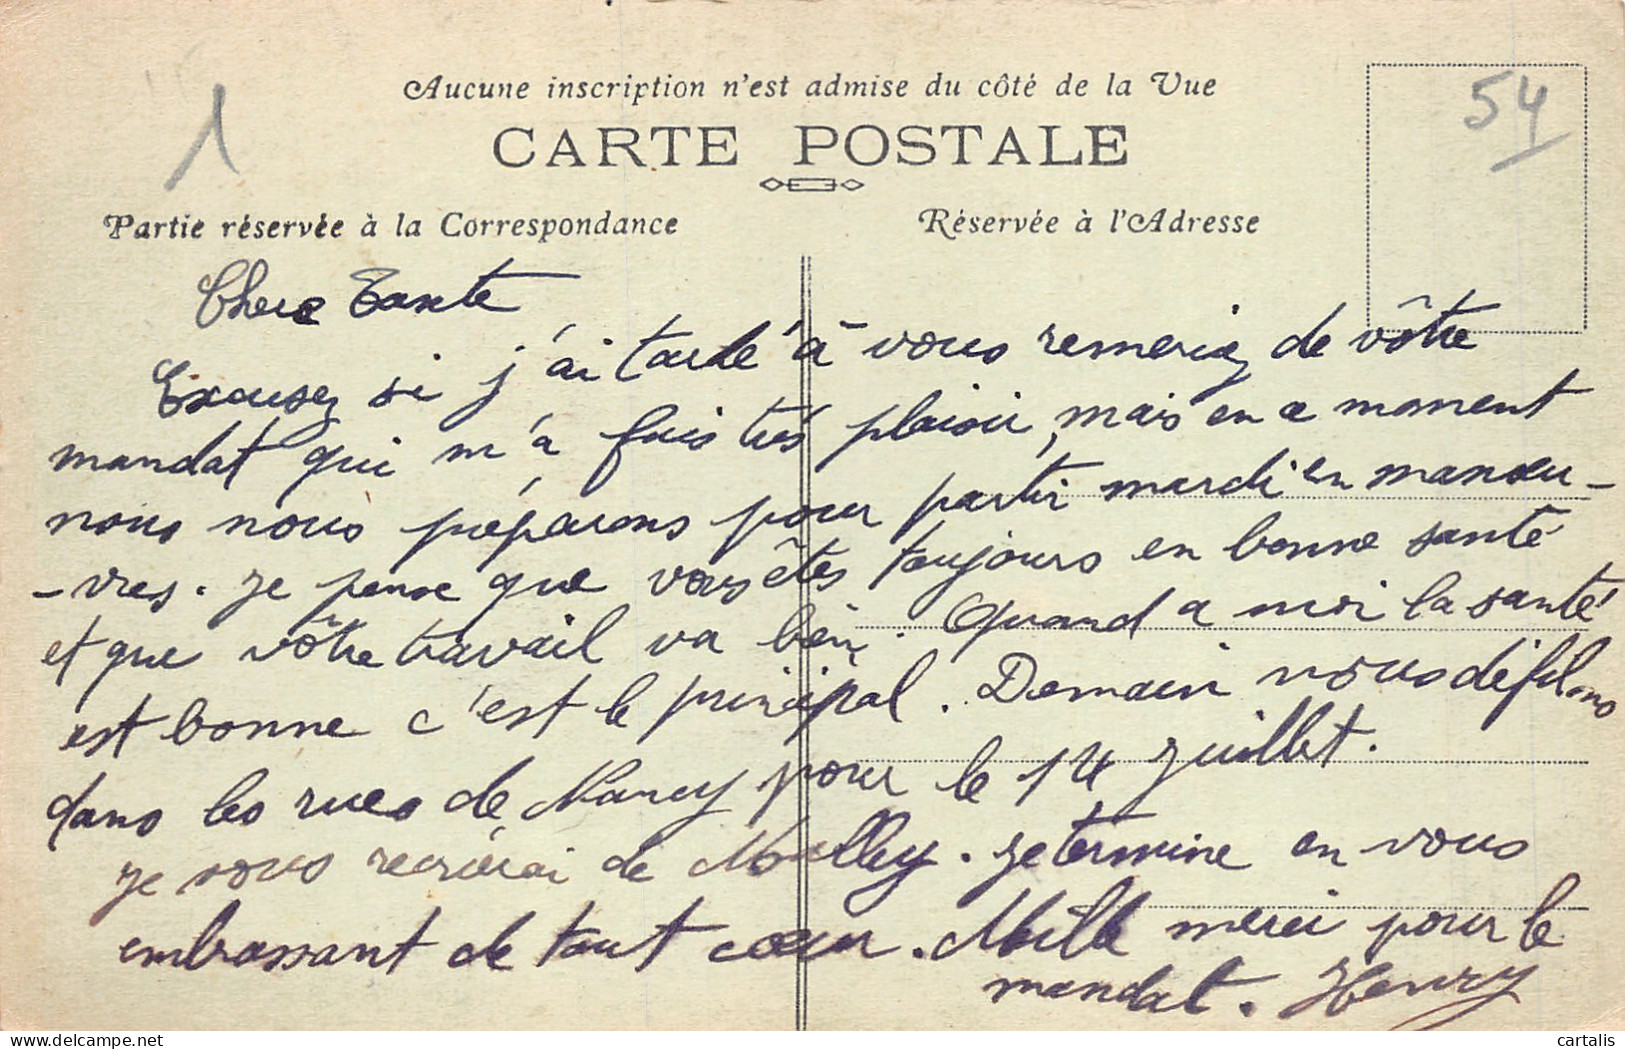 1
54
Aucune inscription n'est admise du côté de la Vue
CARTE POSTALE
Partie réservée à la Correspondance
Réservée à l'Adresse
Chere Tante
Excusez si j'ai tardé à vous remerciez de vôtre
mandat qui m'a fais très plaisir, mais en ce moment
nous nous préparons pour partir mardi en manœu-
-vres. Je pense que vous êtes toujours en bonne santé
et que vôtre travail va bein. Quand a moi la santé
est bonne c'est le principal. Demain nous défilons
dans les rues de Nancy pour le 14 Juillet.
Je vous recrierai de Mailley. Je termine en vous
embrassant de tout cœur. Mille merci pour le
mandat. Henry
cartalis
delcampe.net